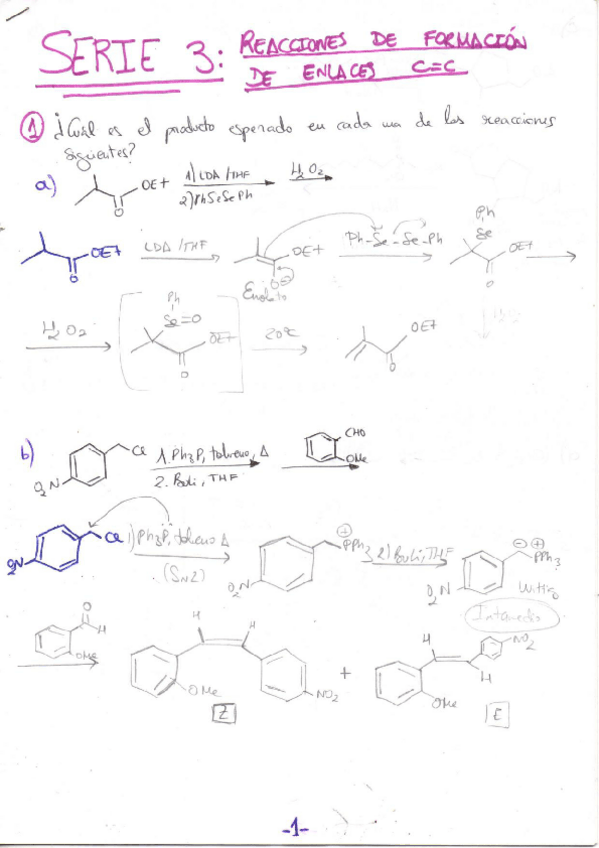 SERIE 3: REACCIONES DE FORMACIÓN
DE ENLACES C=C
① ¿Cuál es el producto esperado en cada una de las reacciones
siguientes?
a) OEt 1) LDA/THF H₂O₂
O 2) PhSeSePh
OEt LDA/THF OEt Ph-Se-Se-Ph Ph Se OEt
O O⊖ O
Enolato
H₂O₂ Ph Se=O OEt 20°C OEt
O O
b) Cl 1. Ph₃P, tolueno, Δ CHO
O₂N 2. BuLi, THF OMe
Cl 1) Ph₃P, tolueno Δ ⊕PPh₃ 2) BuLi, THF ⊖ ⊕PPh₃
O₂N (SN2) O₂N O₂N Wittig
Intermedio
O H H H H NO₂
OMe OMe NO₂ + OMe H
Z E
-1-